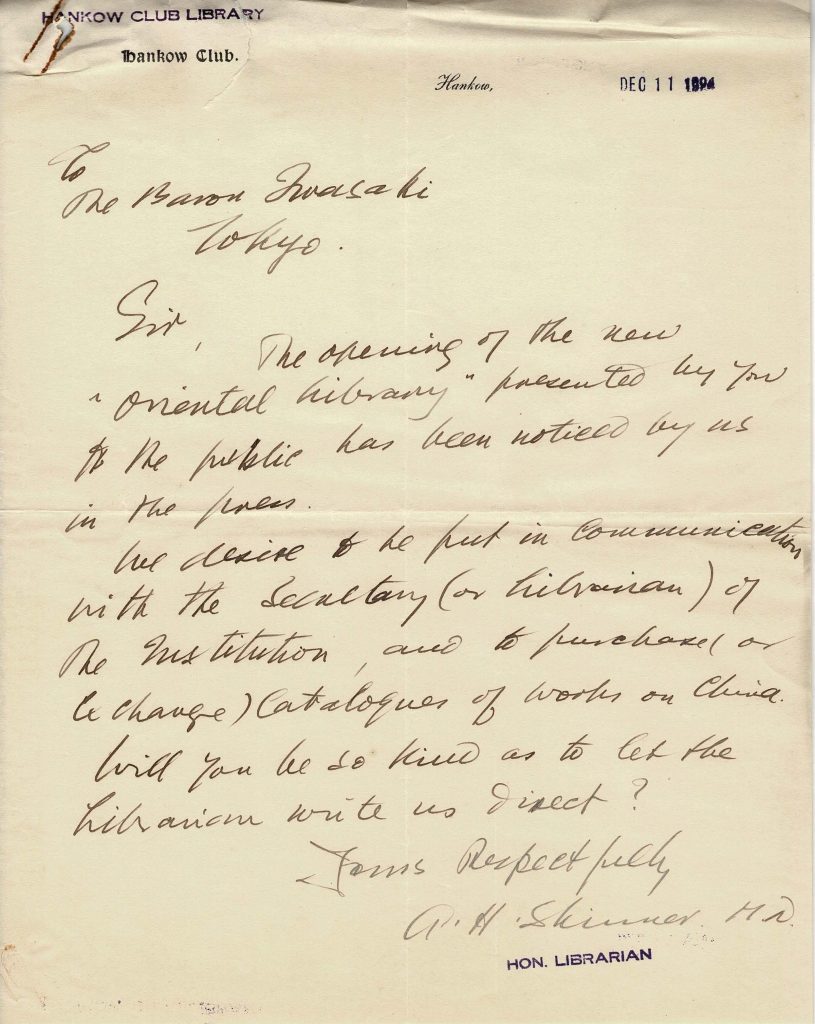 HANKOW CLUB LIBRARY
Hankow Club.
Hankow, DEC 11 1924
To
The Baron Iwasaki
Tokyo.
Sir,
The opening of the new
"Oriental Library" presented by you
to the public has been noticed by us
in the press.
We desire to be put in communication
with the Secretary (or Librarian) of
the Institution, and to purchase (or
exchange) Catalogues of works on China.
Will you be so kind as to let the
Librarian write us direct?
Yours Respectfully
A. H. Skinner. M.D.
HON. LIBRARIAN